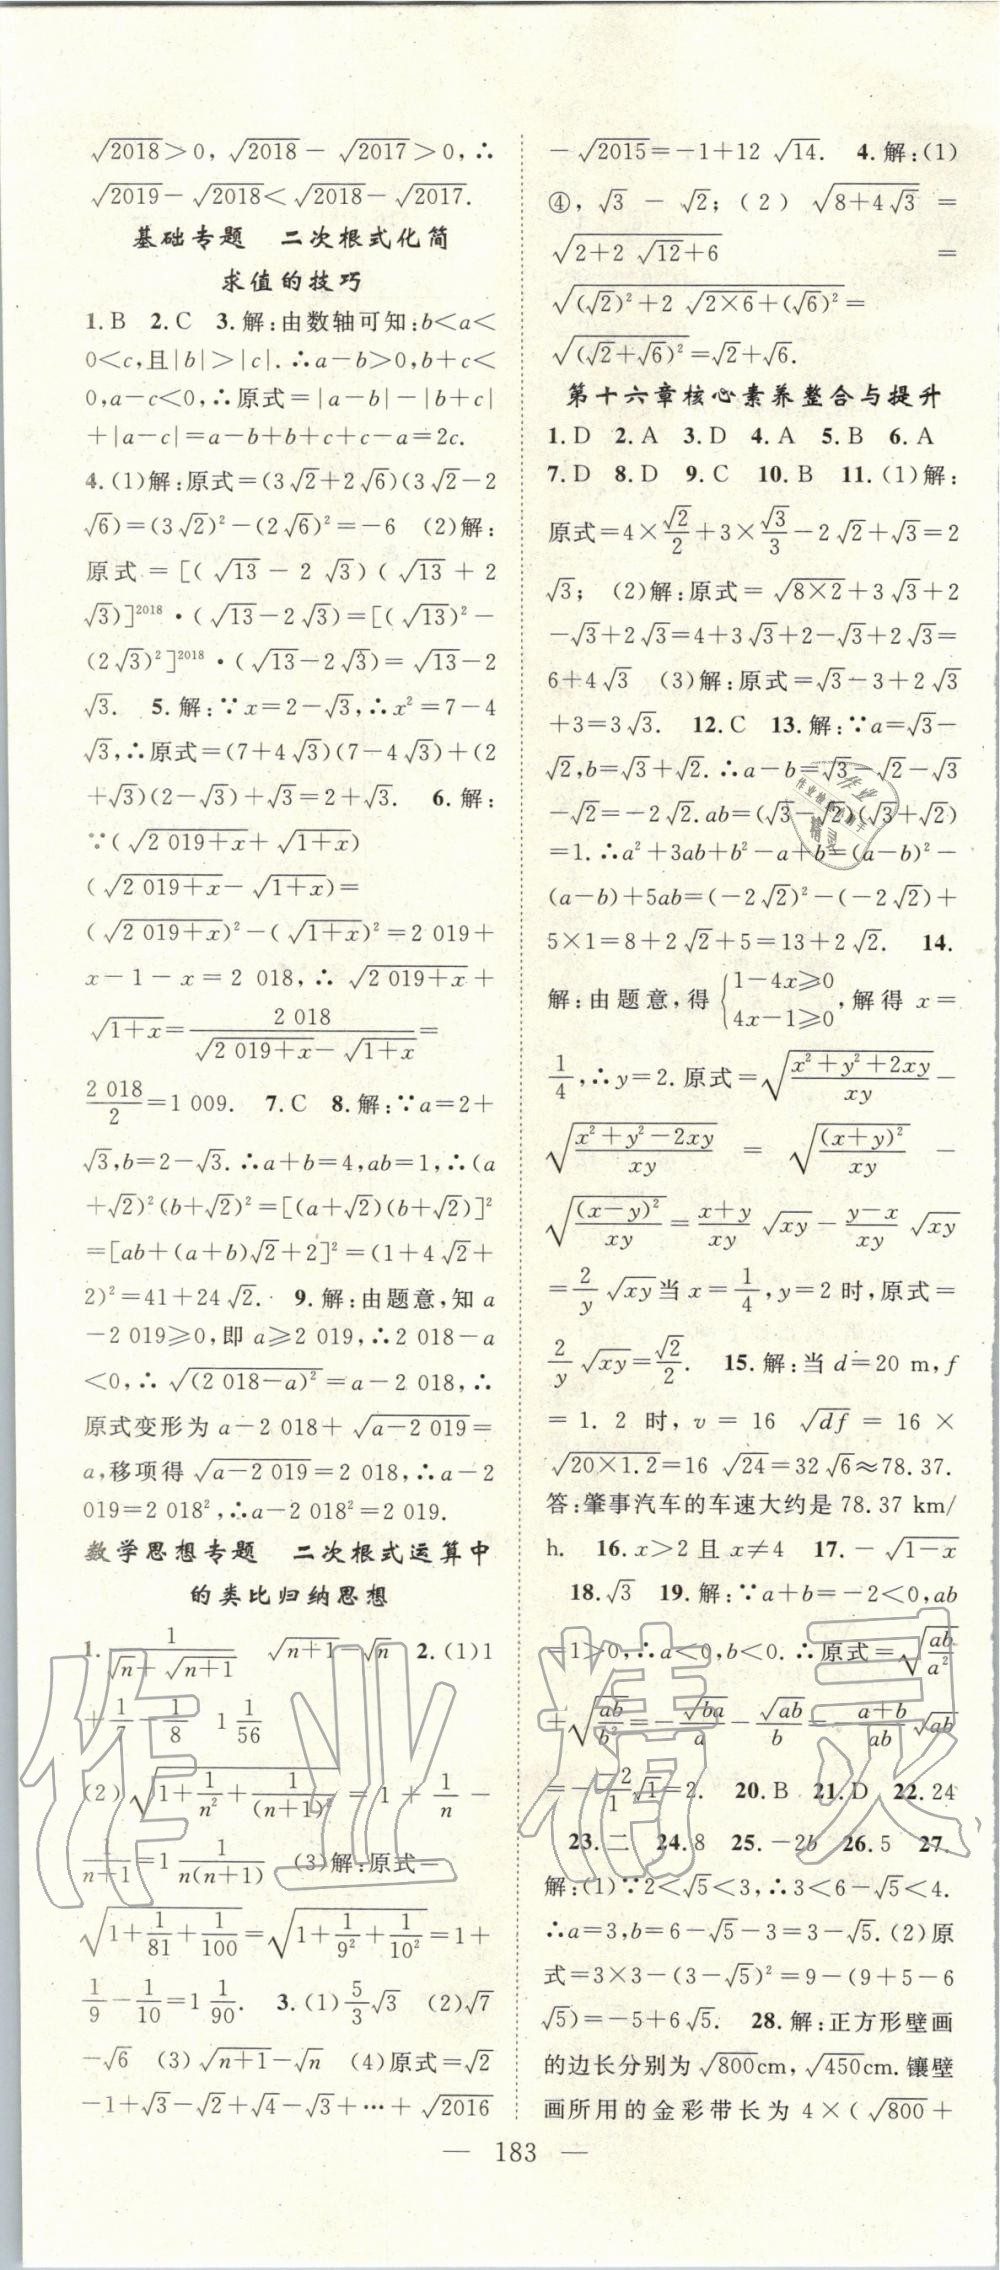 √2018>0, √2018-√2017>0,∴
√2019-√2018<√2018-√2017.
基础专题 二次根式化简
求值的技巧
1.B 2.C 3.解:由数轴可知:b<a<
0<c,且|b|>|c|.∴a-b>0,b+c<
0,a-c<0,∴原式=|a-b|-|b+c|
+|a-c|=a-b+b+c+c-a=2c.
4.(1)解:原式=(3√2+2√6)(3√2-2
√6)=(3√2)²-(2√6)²=-6 (2)解:
原式=[(√13-2√3)(√13+2
√3)]²⁰¹⁸·(√13-2√3)=[(√13)²-
(2√3)²]²⁰¹⁸·(√13-2√3)=√13-2
√3. 5.解:∵x=2-√3,∴x²=7-4
√3,∴原式=(7+4√3)(7-4√3)+(2
+√3)(2-√3)+√3=2+√3. 6.解:
∵(√(2 019+x)+√(1+x))
(√(2 019+x)-√(1+x))=
(√(2 019+x))²-(√(1+x))²=2 019+
x-1-x=2 018,∴√(2 019+x)+
√(1+x)=2 018/(√(2 019+x)-√(1+x))=
2 018/2=1 009. 7.C 8.解:∵a=2+
√3,b=2-√3.∴a+b=4,ab=1,∴(a
+√2)²(b+√2)²=[(a+√2)(b+√2)]²
=[ab+(a+b)√2+2]²=(1+4√2+
2)²=41+24√2. 9.解:由题意,知a
-2 019≥0,即a≥2 019,∴2 018-a
<0,∴√((2 018-a)²)=a-2 018,∴
原式变形为a-2 018+√(a-2 019)=
a,移项得√(a-2 019)=2 018,∴a-2
019=2 018²,∴a-2 018²=2 019.
数学思想专题 二次根式运算中
的类比归纳思想
1. 1/(√n+√(n+1)) √(n+1)-√n 2.(1)1
+1/7-1/8 1 1/56
(2)√(1+1/n²+1/(n+1)²)=1+1/n-
1/(n+1)=1 1/(n(n+1)) (3)解:原式=
√(1+1/81+1/100)=√(1+1/9²+1/10²)=1+
1/9-1/10=1 1/90. 3.(1)5/3√3 (2)√7
-√6 (3)√(n+1)-√n (4)原式=√2
-1+√3-√2+√4-√3+…+√2016
-√2015=-1+12√14. 4.解:(1)
④,√3-√2;(2)√(8+4√3)=
√(2+2√12+6)=
√((√2)²+2√(2×6)+(√6)²)=
√((√2+√6)²)=√2+√6.
第十六章核心素养整合与提升
1.D 2.A 3.D 4.A 5.B 6.A
7.D 8.D 9.C 10.B 11.(1)解:
原式=4×√2/2+3×√3/3-2√2+√3=2
√3; (2)解:原式=√(8×2)+3√3+2
-√3+2√3=4+3√3+2-√3+2√3=
6+4√3 (3)解:原式=√3-3+2√3
+3=3√3. 12.C 13.解:∵a=√3-
√2,b=√3+√2.∴a-b=√3-√2-√3
-√2=-2√2.ab=(√3-√2)(√3+√2)
=1.∴a²+3ab+b²-a+b=(a-b)²-
(a-b)+5ab=(-2√2)²-(-2√2)+
5×1=8+2√2+5=13+2√2. 14.
解:由题意,得{1-4x≥0 4x-1≥0,解得x=
1/4,∴y=2.原式=√((x²+y²+2xy)/xy)-
√((x²+y²-2xy)/xy)=√((x+y)²/xy)-
√((x-y)²/xy)=(x+y)/xy √xy-(y-x)/xy √xy
=2/y √xy当x=1/4,y=2时,原式=
2/y √xy=√2/2. 15.解:当d=20 m,f
=1.2时,v=16√df=16×
√(20×1.2)=16√24=32√6≈78.37.
答:肇事汽车的车速大约是78.37 km/
h. 16.x>2且x≠4 17.-√(1-x)
18.√3 19.解:∵a+b=-2<0,ab
=1>0,∴a<0,b<0.∴原式=√(ab/a²)
+√(ab/b²)=-√ba/a-√ab/b=-(a+b)/ab √ab
=-(-2/1)√1=2. 20.B 21.D 22.24
23.二 24.8 25.-2b 26.5 27.
解:(1)∵2<√5<3,∴3<6-√5<4.
∴a=3,b=6-√5-3=3-√5.(2)原
式=3×3-(3-√5)²=9-(9+5-6
√5)=-5+6√5. 28.解:正方形壁画
的边长分别为√800cm,√450cm.镶壁
画所用的金彩带长为4×(√800+
— 183 —
作业精灵